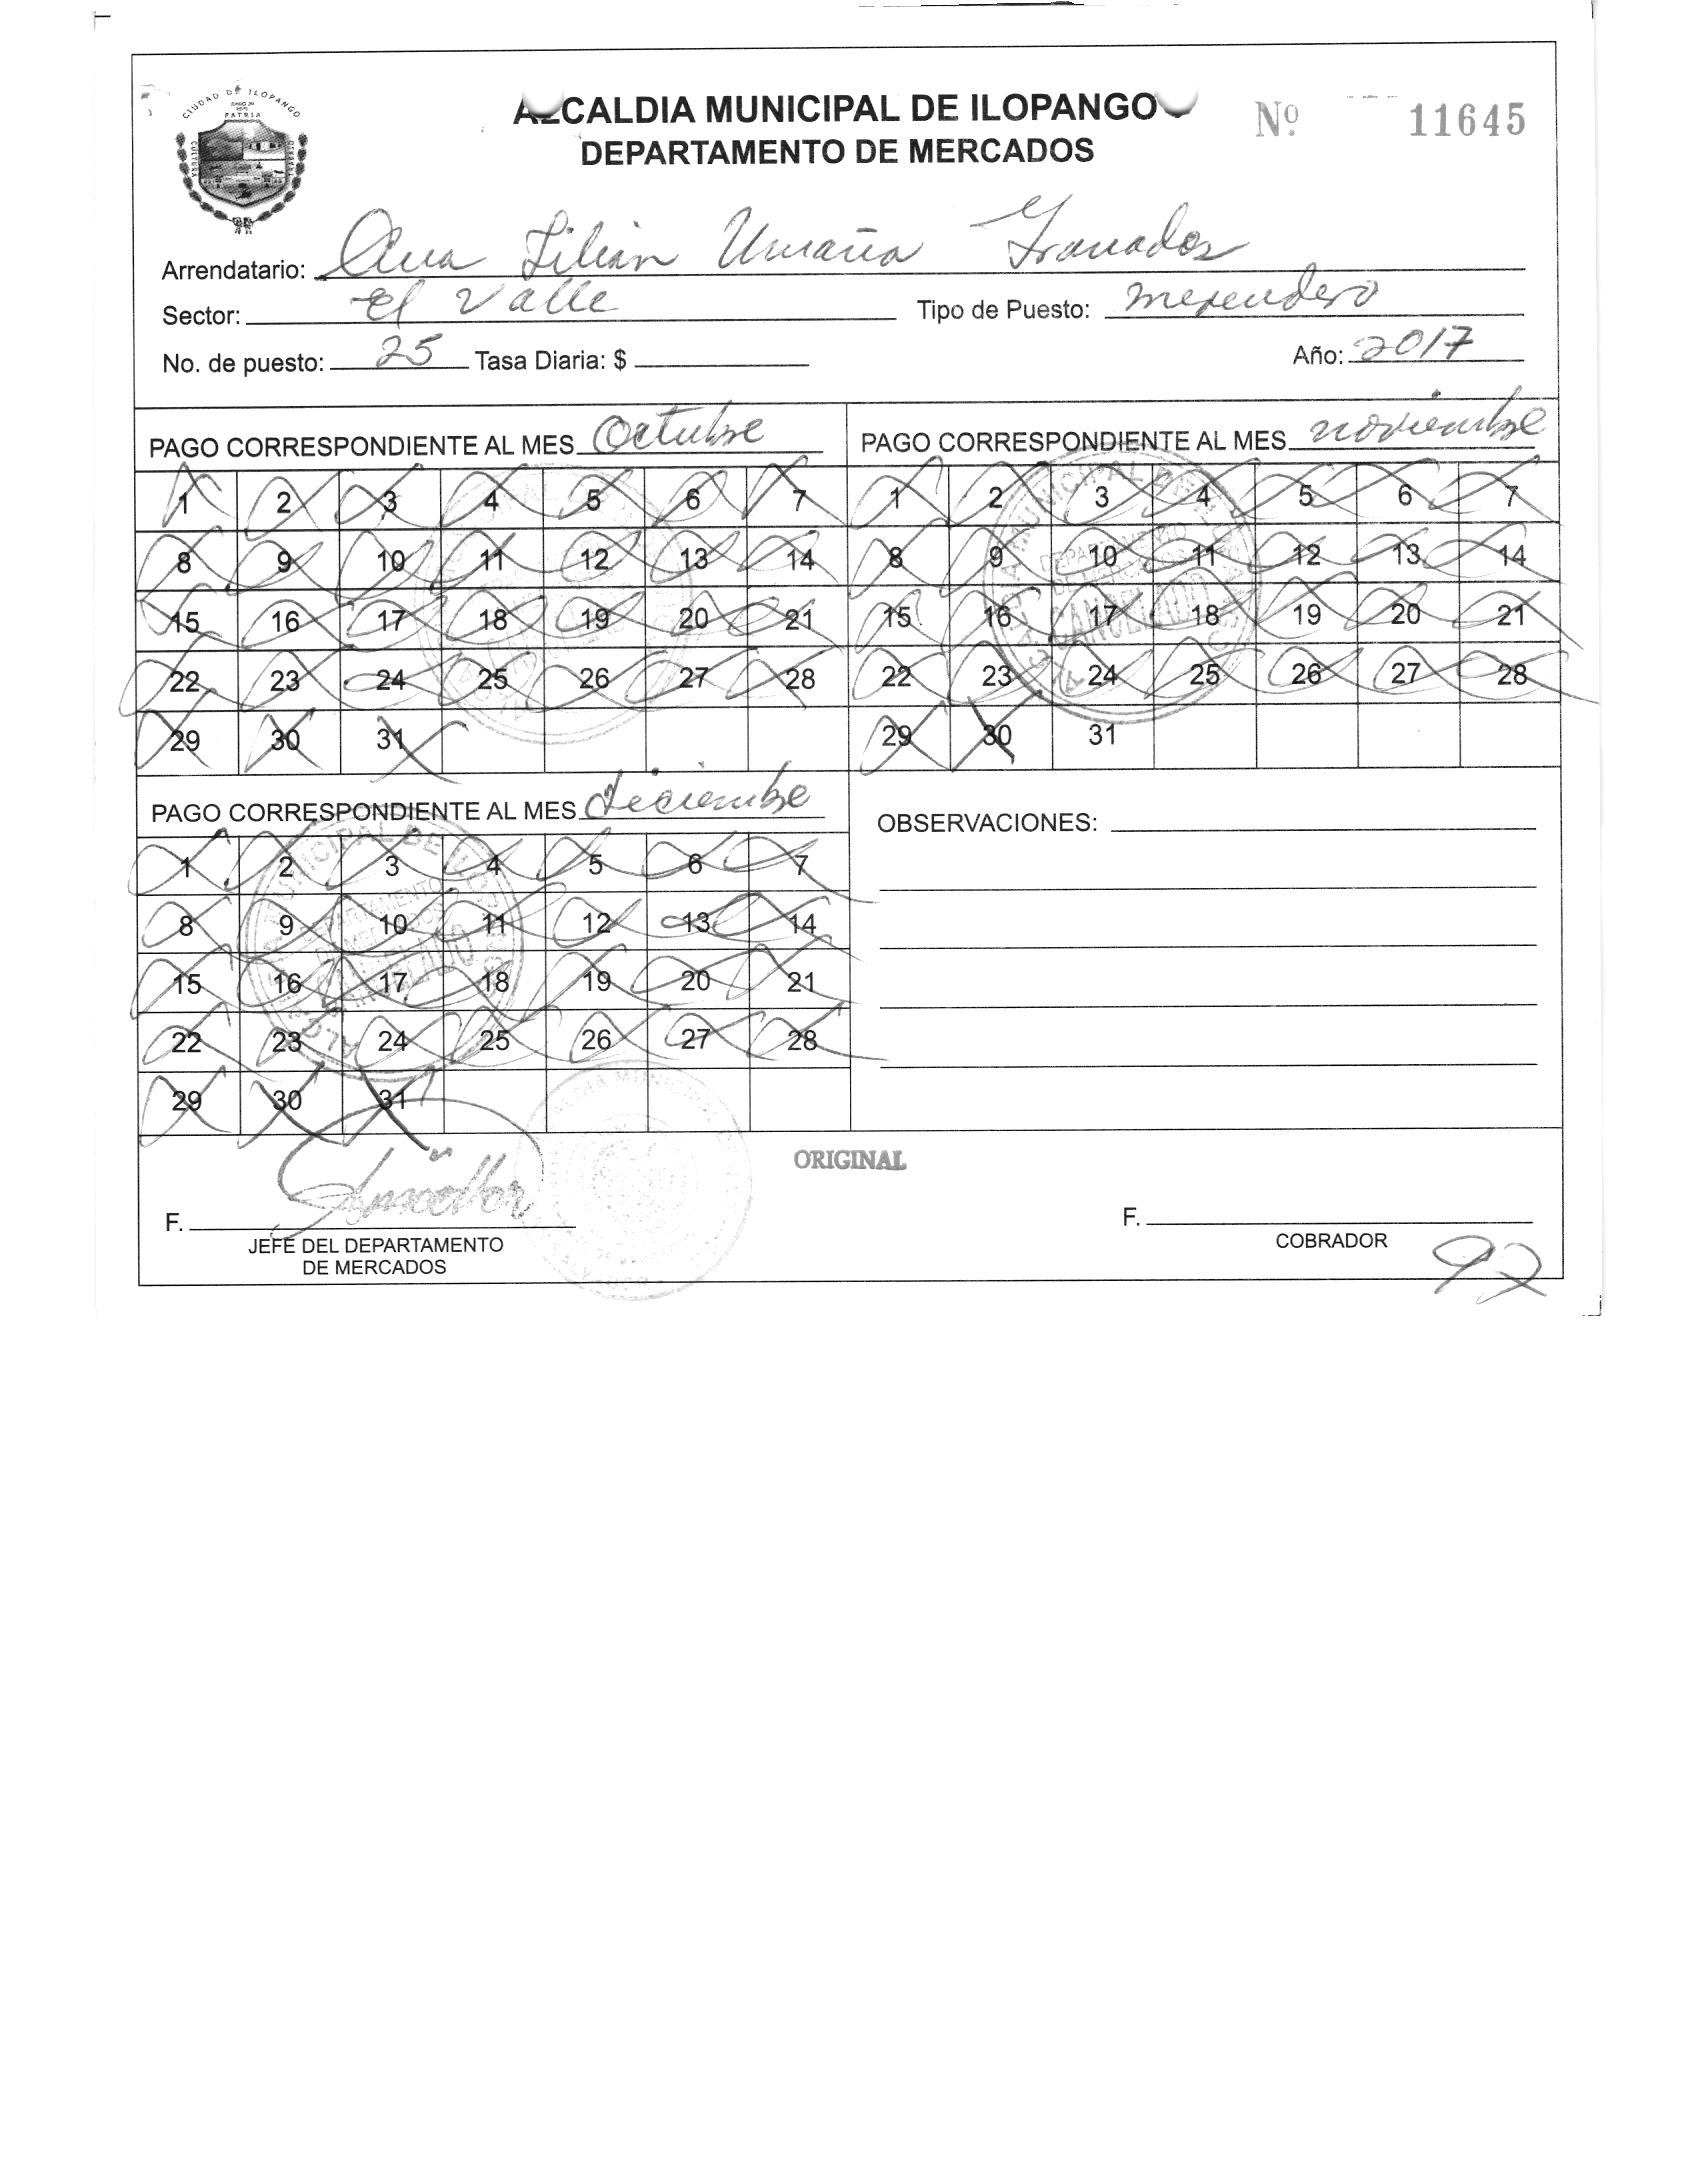 CIUDAD DE ILOPANGO
PATRIA
ALCALDIA MUNICIPAL DE ILOPANGO
Nº 11645
DEPARTAMENTO DE MERCADOS
Arrendatario: Ana Lilian Umaña Granados
Sector: El Valle Tipo de Puesto: merendero
No. de puesto: 25 Tasa Diaria: $ Año: 2017
PAGO CORRESPONDIENTE AL MES Octubre
1 2 3 4 5 6 7
8 9 10 11 12 13 14
15 16 17 18 19 20 21
22 23 24 25 26 27 28
29 30 31
PAGO CORRESPONDIENTE AL MES noviembre
1 2 3 4 5 6 7
8 9 10 11 12 13 14
15 16 17 18 19 20 21
22 23 24 25 26 27 28
29 30 31
CANCELADO
PAGO CORRESPONDIENTE AL MES diciembre
1 2 3 4 5 6 7
8 9 10 11 12 13 14
15 16 17 18 19 20 21
22 23 24 25 26 27 28
29 30 31
OBSERVACIONES:
ORIGINAL
F.
JEFE DEL DEPARTAMENTO
DE MERCADOS
F.
COBRADOR
92